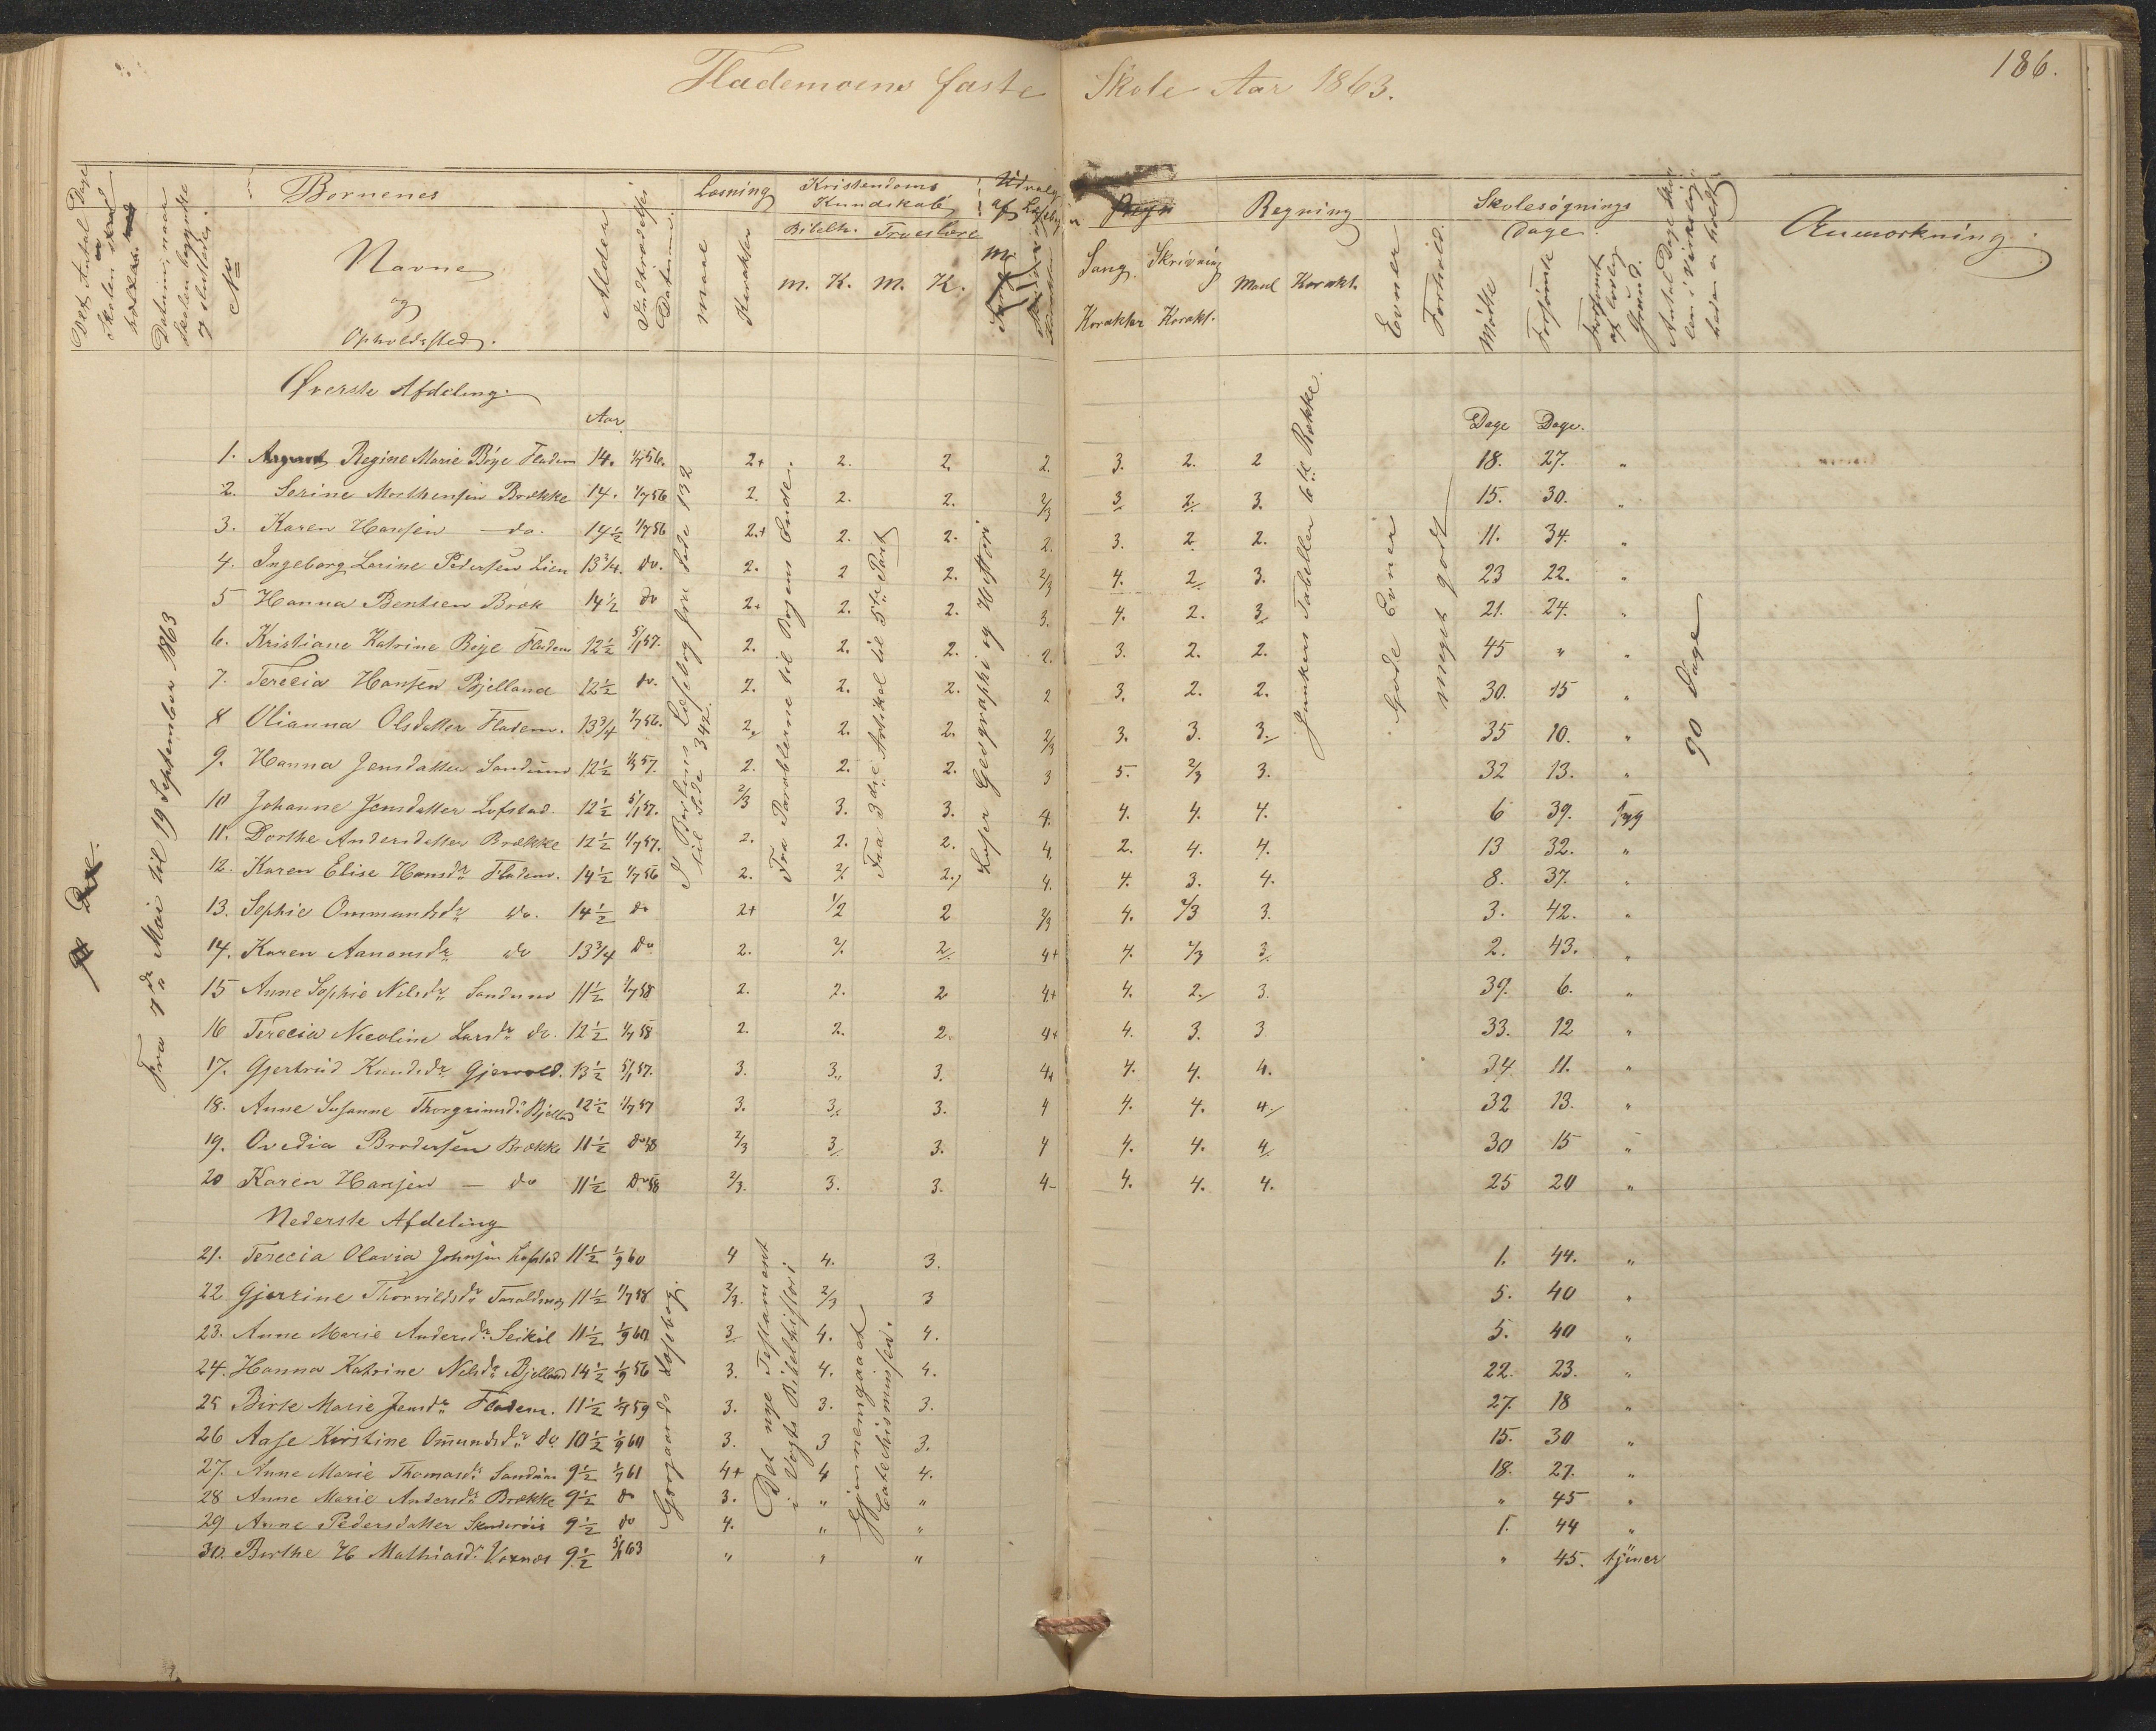 Flademoens faste Skole Aar 1863.
186.
Det Antal Dage Skolen skal holdes
Datum, naar Skolen begyndte og sluttedes.
No
Børnenes
Navne
og
Opholdssted.
Alder
Indtrædelses Datum.
Læsning
Maal
Karakter
Kristendoms Kundskab
Bibelh. Troeslære
M. K. M. K.
Udvalg af Læsebogen
Sang. Skrivning
Karakter Karakt.
Regning
Maal Karakt.
Evner
Forhold.
Skolesøgnings Dage
Mødte
Forsømte
Forsømt af lovlig Grund.
Anmærkning
Øverste Afdeling.
Aar
Dage Dage.
Fra 7de Mai til 19 September 1863
I Jensens Læsebog fra Side 132 til Side 342.
Fra Parablerne til Bogens Ende.
Fra 3die Artikel til 5te Part
Læser Geographi og Histori
Junkers Tabeller 6te Række.
Gode Evner
meget godt
90 Dage
1. Regine Marie Bøye Fladem 14. 1/7 56. 2+ 2. 2. 2. 3. 2. 2 18. 27. "
2. Serine Morthensen Brække 14. 1/7 56 2. 2. 2. 2/3 3 2 3. 15. 30. "
3. Karen Hansen — do. 14½ 1/7 56 2.+ 2. 2. 2. 3. 2 2. 11. 34. "
4. Ingeborg Larine Pedersen Lien 13¾. do. 2. 2 2. 2/3 4. 2 3. 23 22. "
5 Hanna Bentsen Bræk 14½ do 2+ 2. 2. 3. 4. 2. 3 21. 24. "
6. Kristiane Katrine Bøye Fladem 12½ 5/1 57. 2. 2. 2. 2. 3. 2. 2. 45 " "
7. Terecia Hansen Bjelland 12½ do. 2. 2. 2. 2 3. 2. 2. 30. 15 "
8 Olianna Olsdatter Fladem. 13¾ 1/7 56. 2. 2. 2. 2/3 3. 3. 3. 35 10. "
9. Hanna Jensdatter Sandum 12½ 1/7 57. 2. 2. 2. 3 5. 2/3 3. 32 13. "
10 Johanne Jensdatter Lofstad. 12½ 5/1 57. 2/3 3. 3. 4. 4. 4. 4. 6 39. syg
11. Dorthe Andersdatter Brække 12½ 1/7 57. 2. 2. 2. 4. 2. 4. 4. 13 32. "
12. Karen Elise Hansdr Fladem. 14½ 1/7 56 2. 2. 2. 4. 4. 3. 4. 8. 37. "
13. Sophie Ommundsdr do. 14½ do 2+ 1/2 2 2/3 4. 2/3 3. 3. 42. "
14. Karen Aanonsdr do 13¾ do 2. 2. 2 4+ 4. 2/3 3 2. 43. "
15 Anne Sophie Nilsdr Sandum 11½ 1/7 58 2. 2. 2 4+ 4. 2. 3. 39. 6. "
16 Terecia Nicoline Larsdr do. 12½ 1/7 58 2. 2. 2. 4+ 4. 3. 3. 33. 12 "
17. Gjertrud Knudsdr Gjervold. 13½ 5/1 57. 3. 3. 3. 4+ 4. 4. 4. 34 11. "
18. Anne Susanne Thorgrimsdr Bjelland 12½ 1/7 57 3. 3. 3. 4 4. 4. 4. 32 13. "
19. Ovedia Brodersen Brække 11½ do 58 2/3 3 3. 4 4. 4. 4 30 15 "
20 Karen Hansen — do 11½ do 58 2/3. 3. 3. 4- 4. 4. 4. 25 20 "
Nederste Afdeling
Gorgaards Læsebog
Det nye Testament i Vogts Bibelhistori
Gjennemgaaet Catechismusen.
21. Terecia Olavia Johnsen Lofstad 11½ 1/9 60 4 4. 3. 1. 44. "
22 Gjerrine Thorvildsdr Taraldsnæs 11½ 1/7 58 2/3. 2/3 3 5. 40 "
23. Anne Marie Andersdr Seikil 11½ 1/9 60 3 4. 4. 5. 40 "
24. Hanna Katrine Nilsdr Bjelland 14½ 1/9 56 3. 4. 4. 22. 23. "
25 Birte Marie Jensdr Fladem. 11½ 1/7 59 3. 3. 3. 27. 18 "
26 Aase Kirstine Omundsdr do 10½ 1/9 60 3. 3 3. 15. 30 "
27. Anne Marie Thomasdr Sandum 9½ 1/7 61 4+ 4 4. 18. 27. "
28 Anne Marie Andersdr Brække 9½ do 3. " " " 45 "
29 Anne Pedersdatter 9½ do 4. " " 1. 44 "
30. Berthe H Mathiasdr Voxnæs 9½ 5/1 63 " " " " 45. tjener